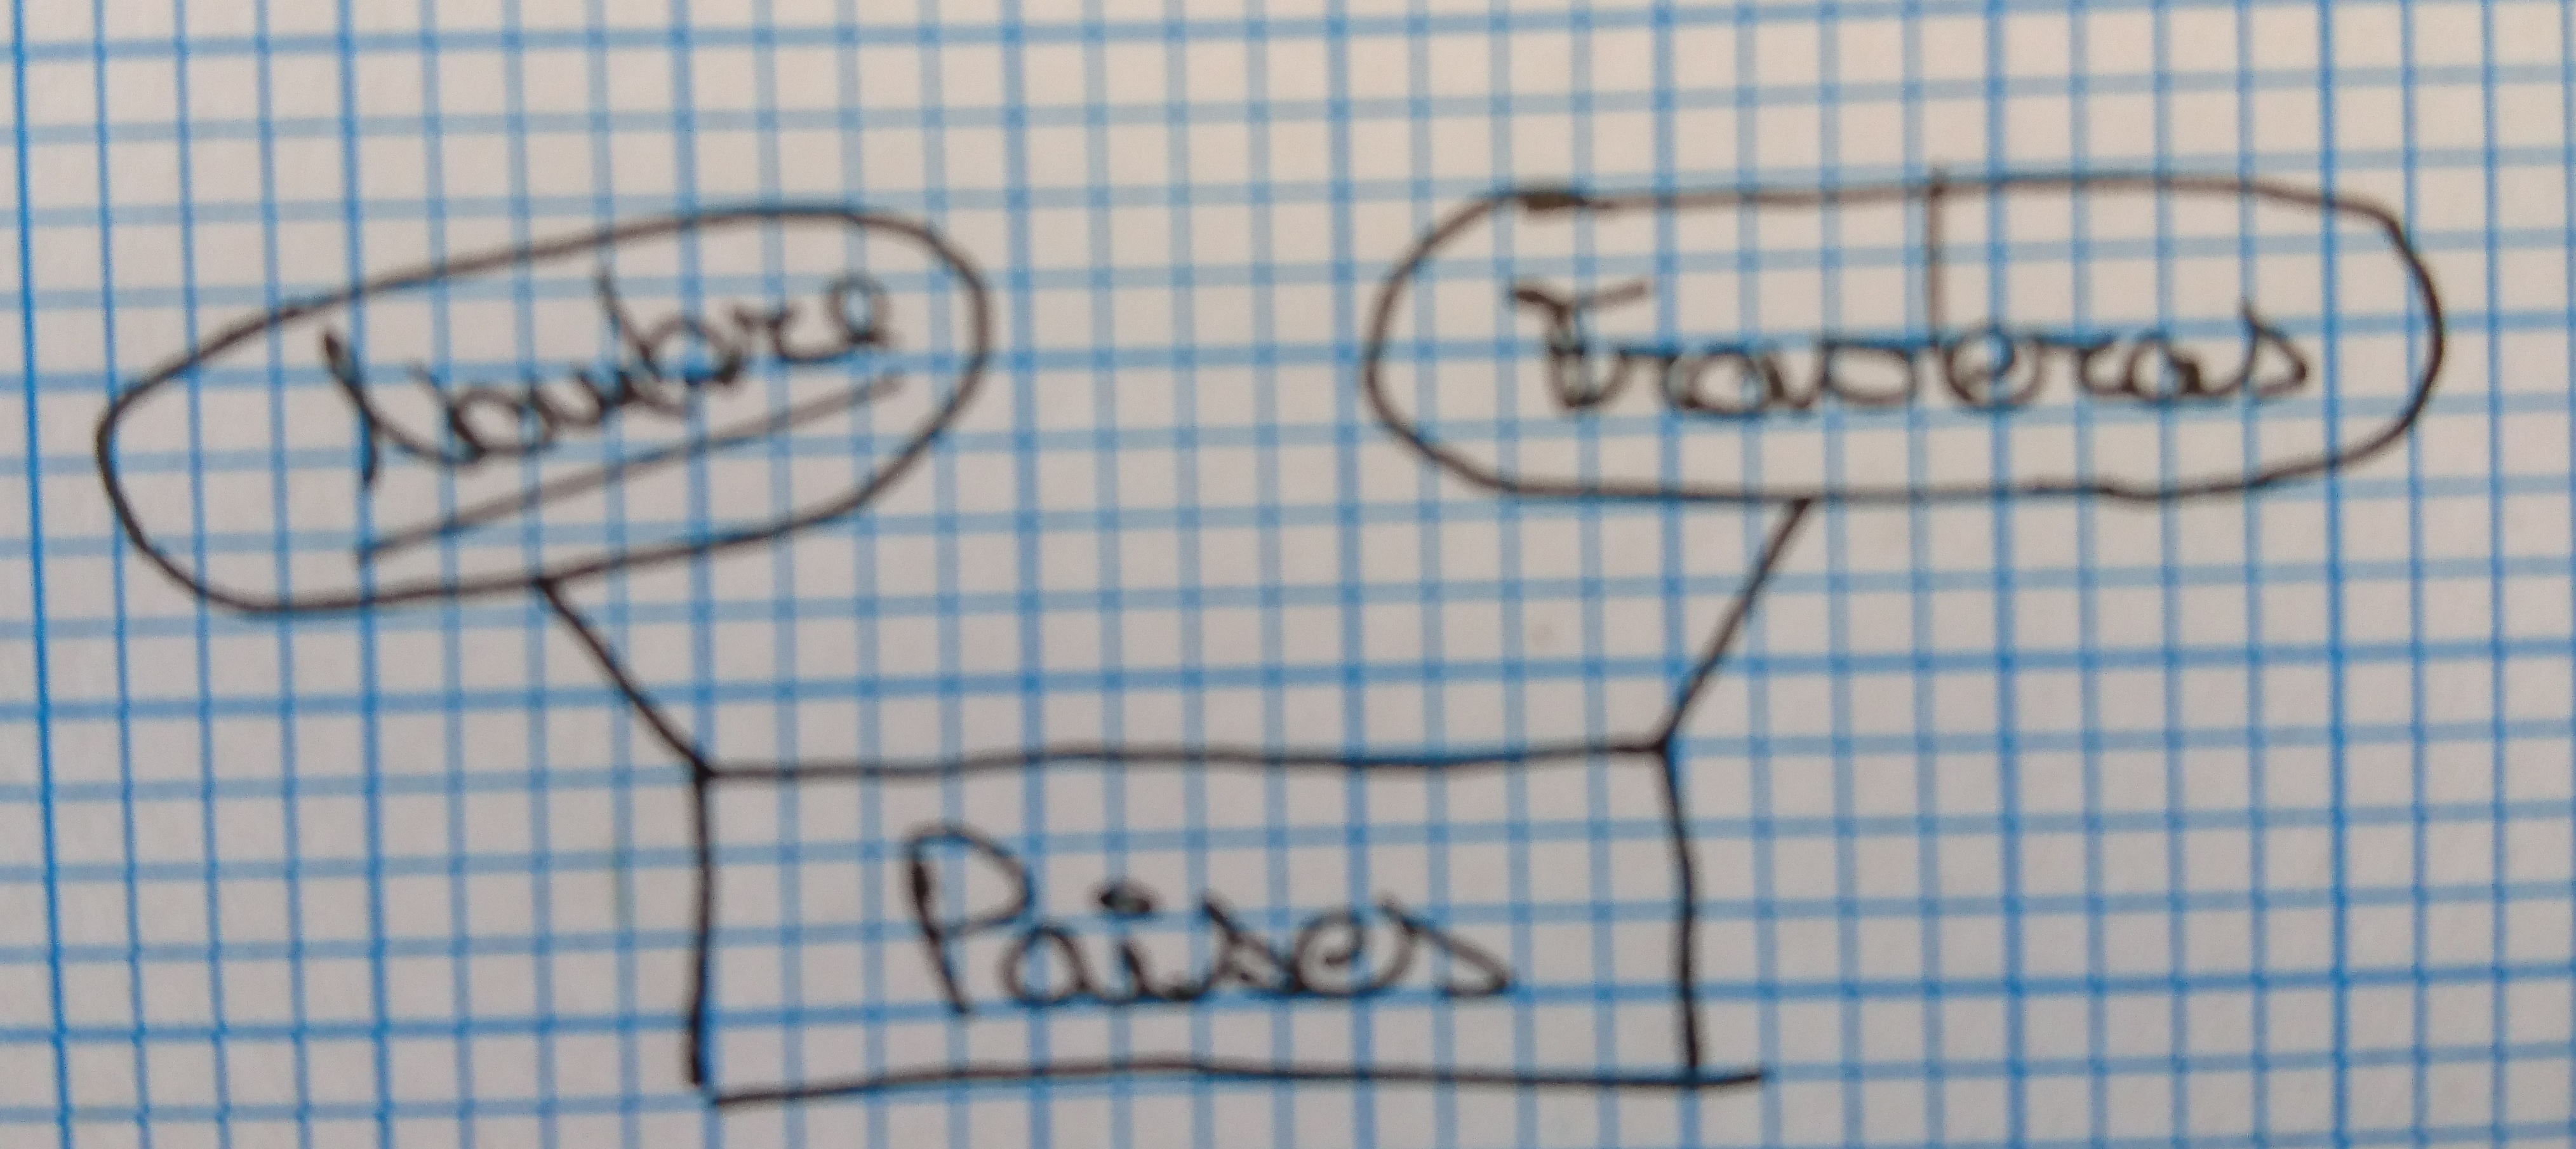 Nombre
Fronteras
Paises